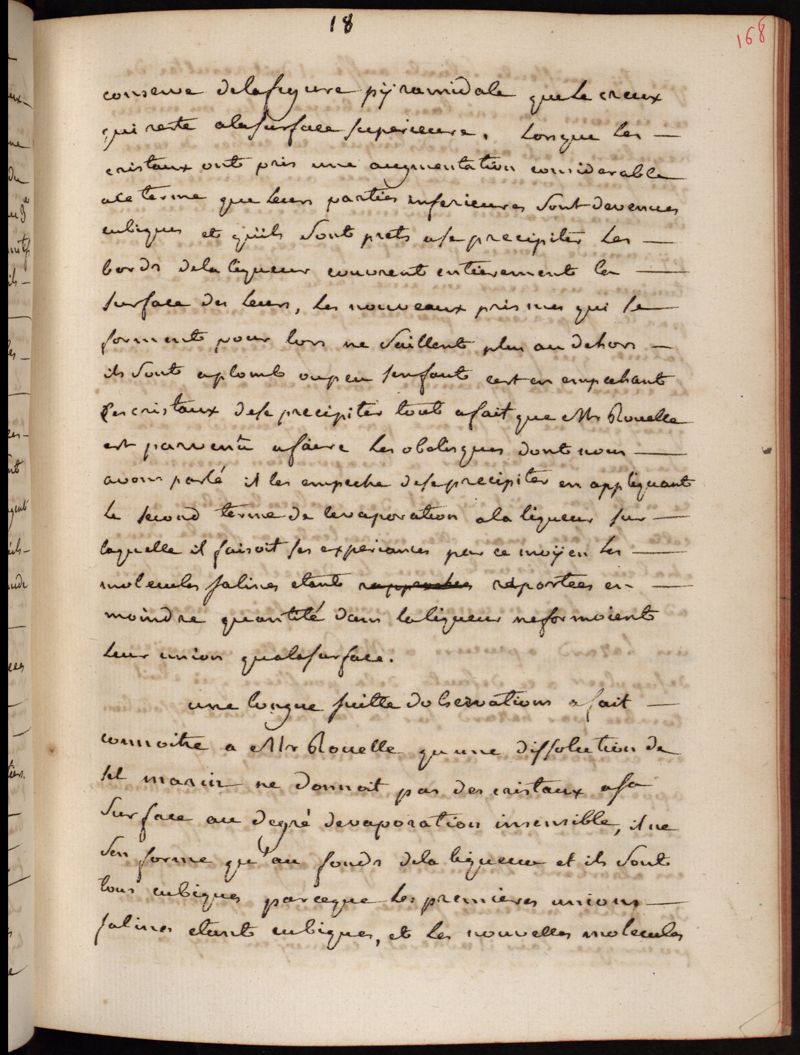 18
168
conserve de la figure pÿramidale que le creux
qui reste a la surface superieure. Lorsque les —
cristaux ont pris une augmentation considerable
a le terme que leurs parties inferieures sont devenues
cubiques et qu'ils sont prets a se precipiter les —
bords de la liqueur couvrent entierement la —
surface des leurs, les nouveaux prismes qui se
forment pour lors ne saillent plus au dehors —
ils sont aplomb ou peu sen faut c'est en empechant
les cristaux de se precipiter tout a fait que Mr Rouelle
est parvenu a faire les obelisques dont nous —
avons parlé il les empeche de se precipiter en appliquant
le second terme de levaporation a la liqueur sur —
laquelle il faisoit ses experiances par ce moÿen les —
molecules salines etant reportées en —
moindre quantité dans la liqueur ne formoient
leur union qu'a la surface.
une longue suitte dobservations a fait —
connoitre a Mr Rouelle qu'une dissolution de
sel marin ne donnoit pas des cristaux a sa
surface au degré devaporation insensible, il ne
s'en forme qu'au fonds de la liqueur et ils sont
tous cubiques parceque les premieres unions —
salines etant cubiques, et les nouvelles molecules